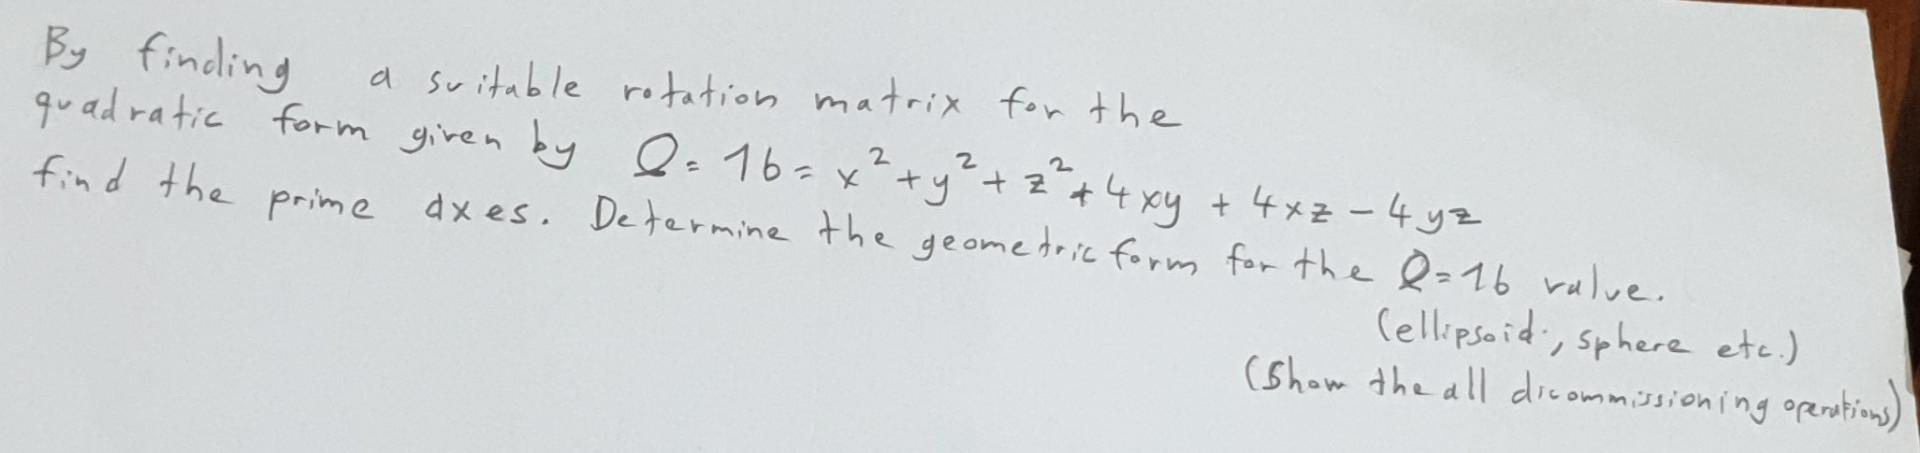 By finding a suitable rotation matrix for the
quadratic form given by Q = 16 = x² + y² + z² + 4xy + 4xz - 4yz
find the prime axes. Determine the geometric form for the Q=16 value.
(ellipsoid, sphere etc.)
(Show the all dicommissioning operations)